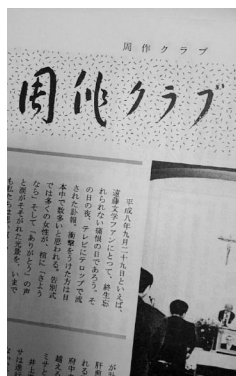 周作クラブ
周作クラブ
平成八年九月二十九日といえば、
遠藤文学ファンにとって、終生忘
れられない痛恨の日であろう。そ
の日の夜、テレビにテロップで流
された訃報。衝撃をうけた方は日
本中で数多いと思われる。告別式
では多くの女性が、棺に「さよう
なら」そして「ありがとう」の声
と涙がそそがれた光景を、いまで